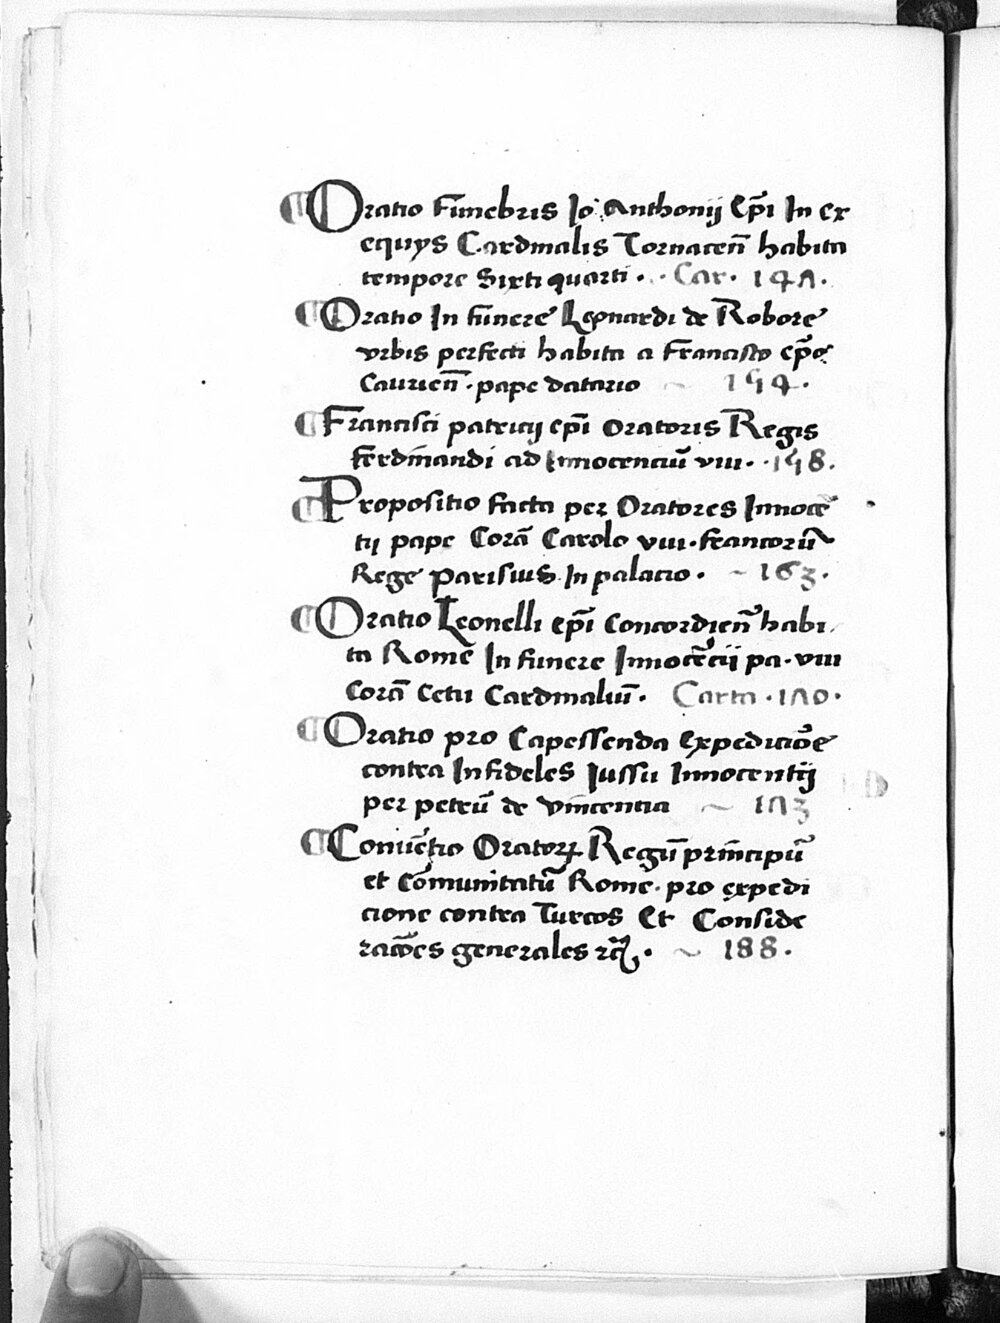 Oratio funebris Jo. Anthonij Ep̄i In ex
equijs Cardinalis Tornaceñ habita
tempore Sixti quarti . . Car. 147.
Oratio In fun̄ere Leonardi de Robore
vrbis perfecti habita a Francisco ep̄o
Caurieñ . pape datario ~ 154.
Francisci patricij ep̄i Oratoris Regis
ferdin̄andi ad Innocenciū viii. . 158.
Propositio facta per Oratores Innocē
tij pape Corā Carolo viii. francorū
Rege Parisius In palacio . ~ 163.
Oratio Leonelli ep̄i Concordieñ habi
ta Rome In funere Innocēcij pa. viii
Corā Cetu Cardinaliū . Carta . 170.
Oratio pro Capessenda Expediciōe
contra Infideles Jussu Innocentij
per petrū de vin̄centia ~ 173
Conuētio Oratorꝝ Regū prin̄cipū
et Cōmunitatū Rome . pro expedi
cione contra Turcos Et Conside
raciōes generales ⁊c̄ . ~ 188.